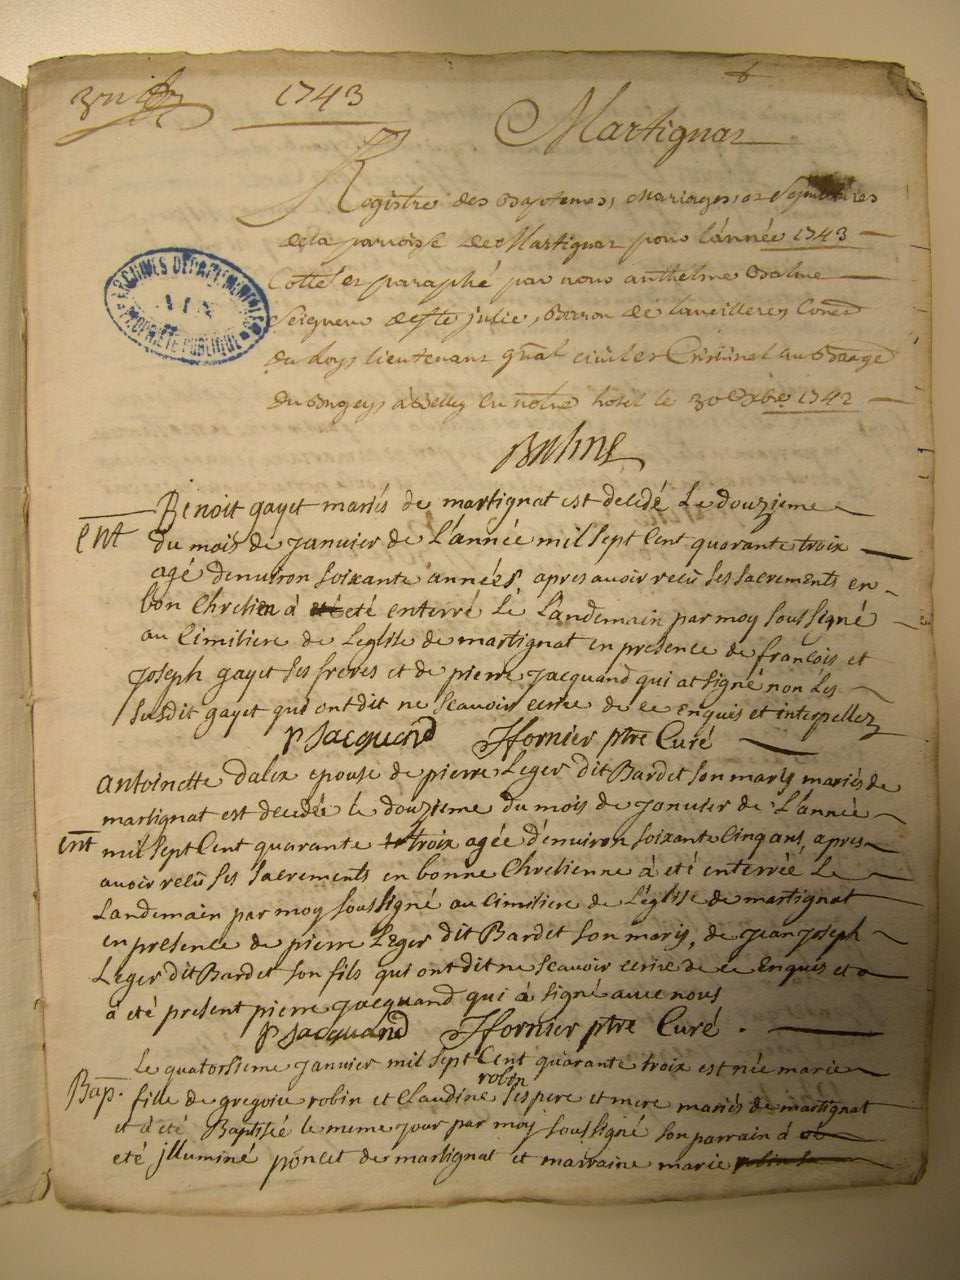 1743
Martignat
Registre des Baptemes, Mariages, et Sepultures
de la paroisse de Martignat pour l'année 1743
Cotté et paraphé par nous anthelme Balme
Seigneur de Ste julie, Baron de
du Roys lieutenant gnal civil et Criminel au Bailliage
du Bugeys à Belley en notre hotel le 30e Xbre 1742
Balme
Benoit gayet mariés de martignat est decedé Le douzieme
Ent
du mois de janvier de L'année mil sept Cent quarante troix
agé d'environ soixante années apres avoir recû ses sacrements en
bon Chretien à eté enterré Le Landemain par moy soussigné
au Cimitiere de L'eglise de martignat en presence de francois et
joseph gayet ses freres et de pierre jacquand qui at signé non Les
susdit gayet qui ont dit ne scavoir ecrire de ce Enquis et interpellez
P Jacquand JFornier ptre Curé
Antoinette dalex epouse de pierre Leger dit Bardet son maris mariés de
martignat est decedée le douzieme du mois de janvier de L'année
Ent
mil sept Cent quarante troix agée d'environ soixante Cinq ans, apres
avoir recû ses sacrements en bonne Chretienne à eté enterrée Le
Landemain par moy soussigné au Cimitiere de L'église de martignat
en presence de pierre Leger dit Bardet son maris, de jean joseph
Leger dit Bardet son fils qui ont dit ne scavoir ecrire de ce Enquis et a
à été présent pierre jacquand qui à signé avec nous
P Jacquand JFornier ptre Curé.
Le quatorsieme janvier mil sept Cent quarante troix est née marie
robin
Bap.
fille de gregoire robin et Claudine ses pere et mere mariés de martignat
et à été Baptisée le meme jour par moy soussigné son parrain à
eté illuminé poncet de martignat et marraine marie
ARCHIVES DEPARTEMENTALES
AIN
PROPRIÉTÉ PUBLIQUE